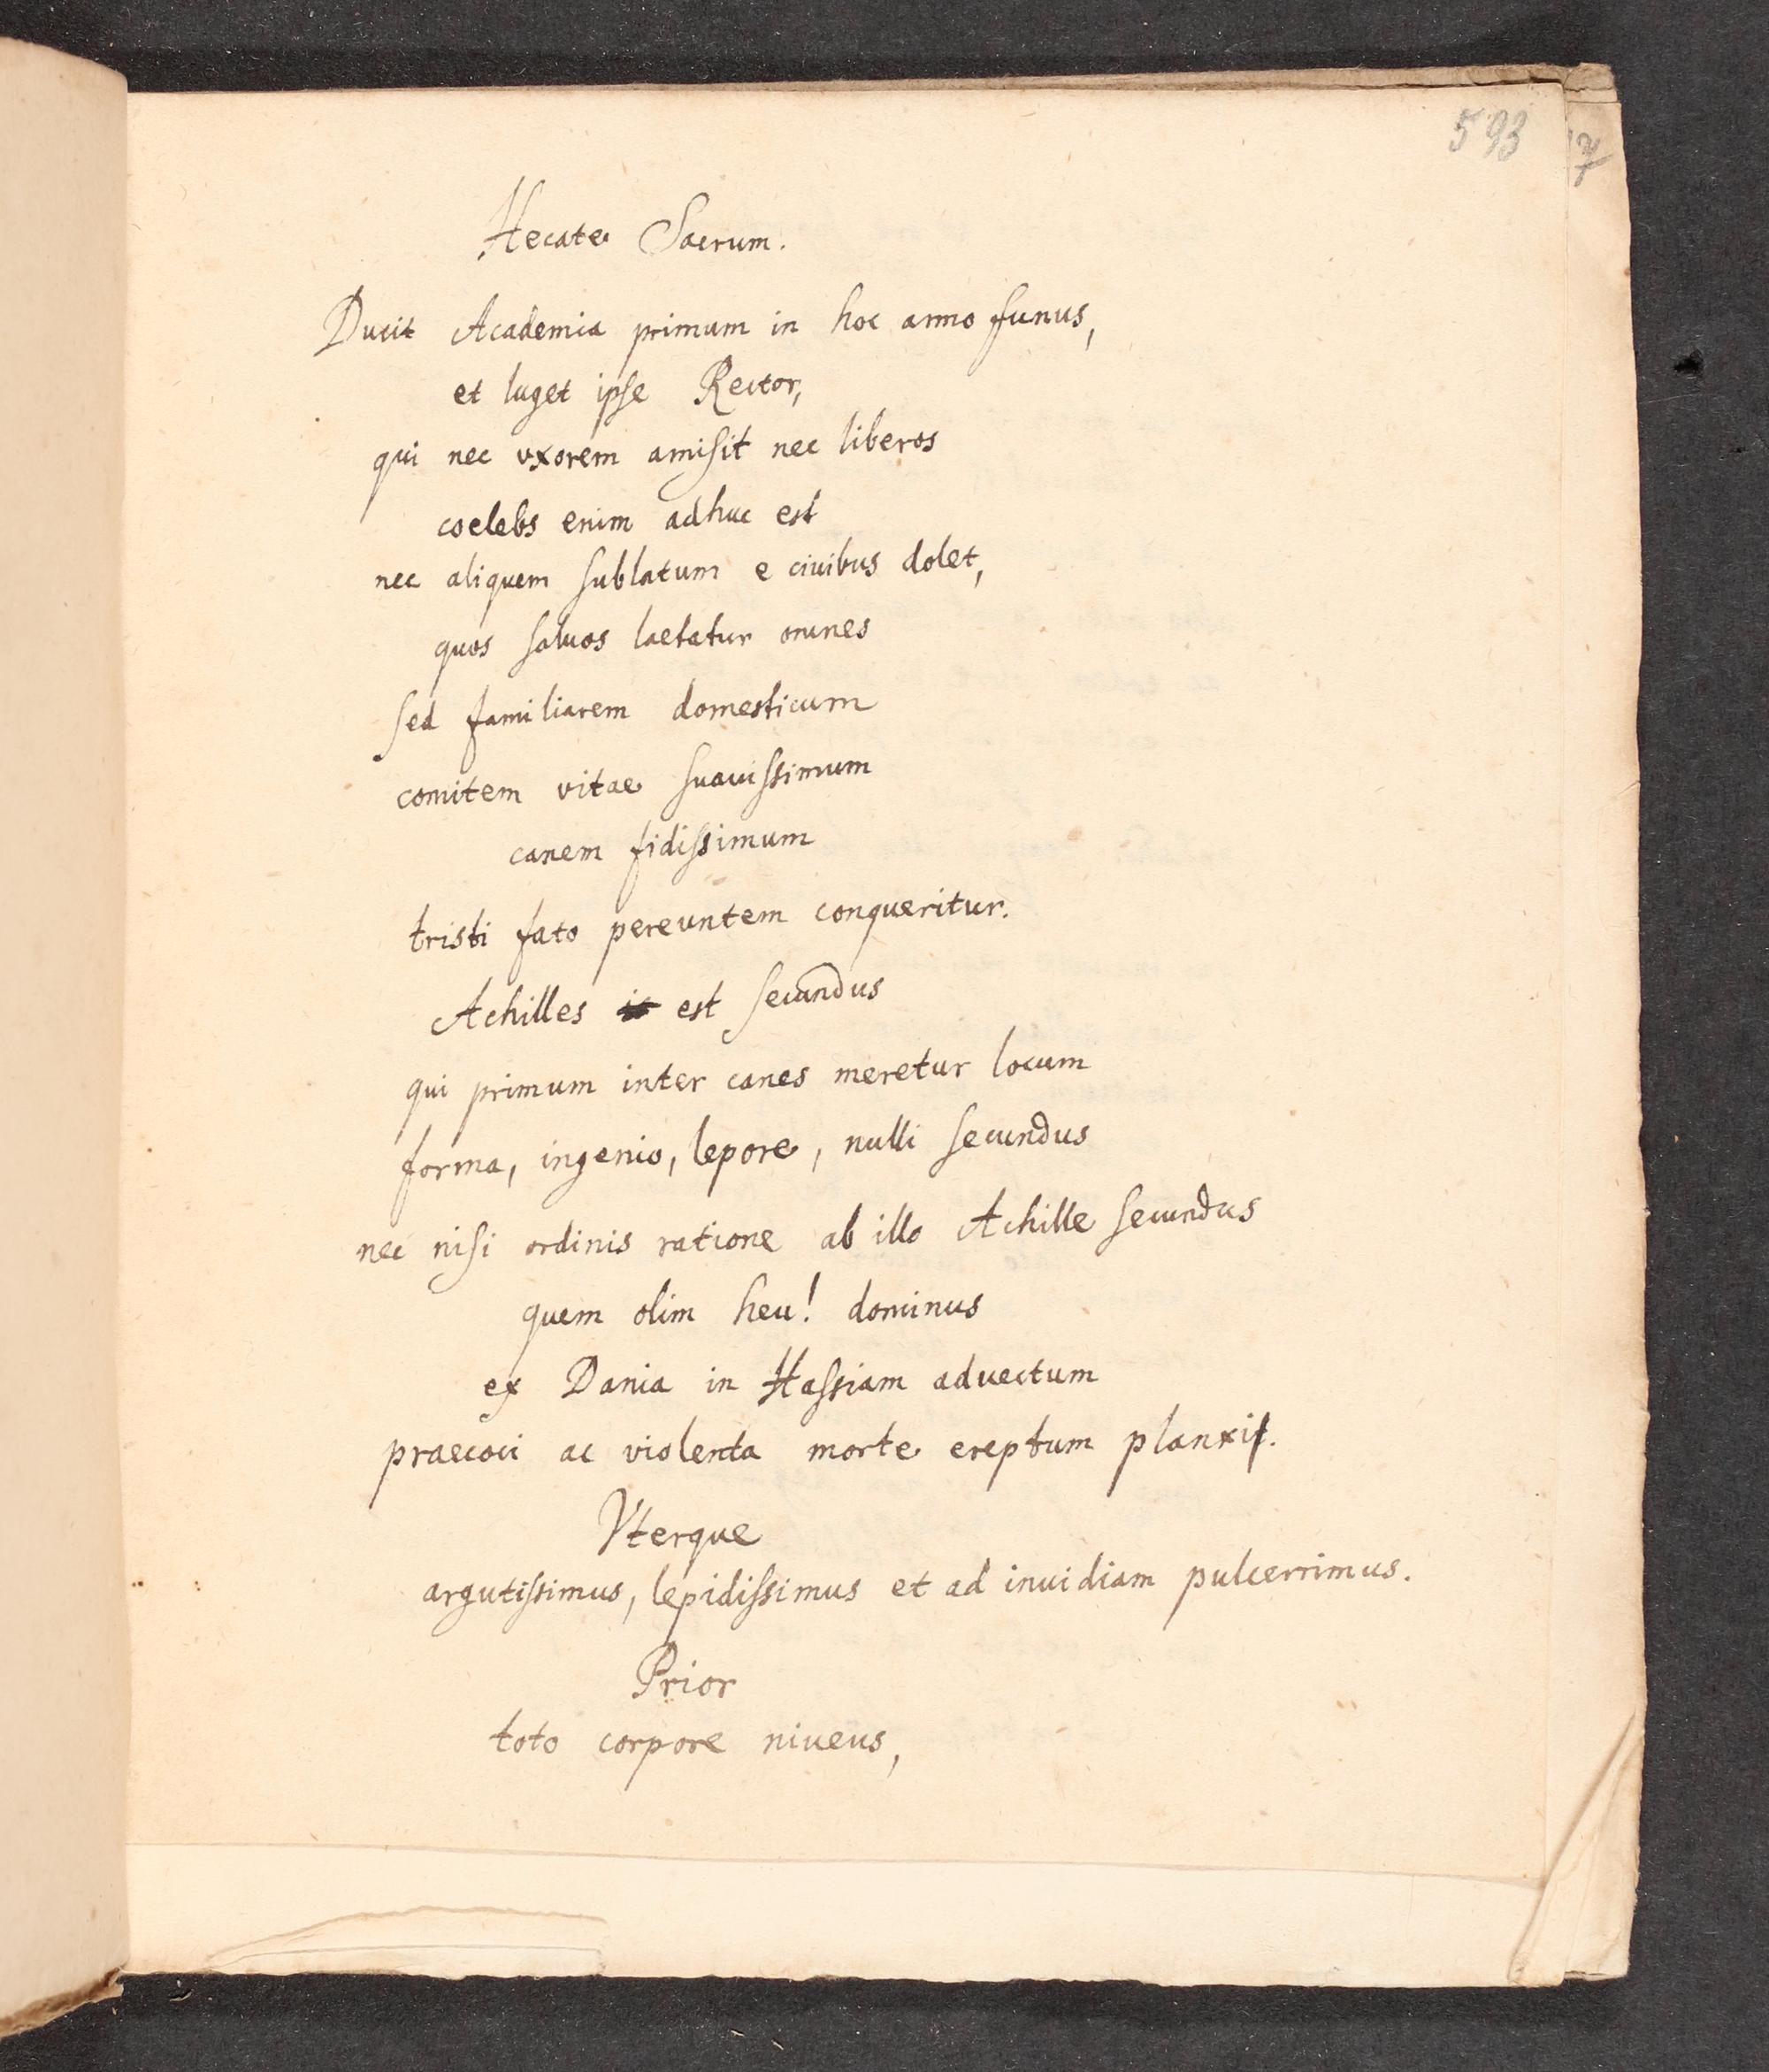 593
7
Hecate Sacrum.
Ducit Academia primum in hoc anno funus,
et luget ipſe Rector,
qui nec vxorem amiſit nec liberos
coelebs enim adhuc est
nec aliquem ſublatum e ciuibus dolet,
quos ſaluos laetatur omnes
ſed familiarem domesticum
comitem vitae ſuauiſsimum
canem fidiſsimum
tristi fato pereuntem conqueritur.
Achilles est ſecundus
qui primum inter canes meretur locum
forma, ingenio, lepore, nulli ſecundus
nec niſi ordinis ratione ab illo Achille ſecundus
quem olim heu! dominus
ex Dania in Haſsiam aduectum
praecoci ac violenta morte ereptum planxit.
Vterque
argutiſsimus, lepidiſsimus et ad inuidiam pulcerrimus.
Prior
toto corpore niueus,